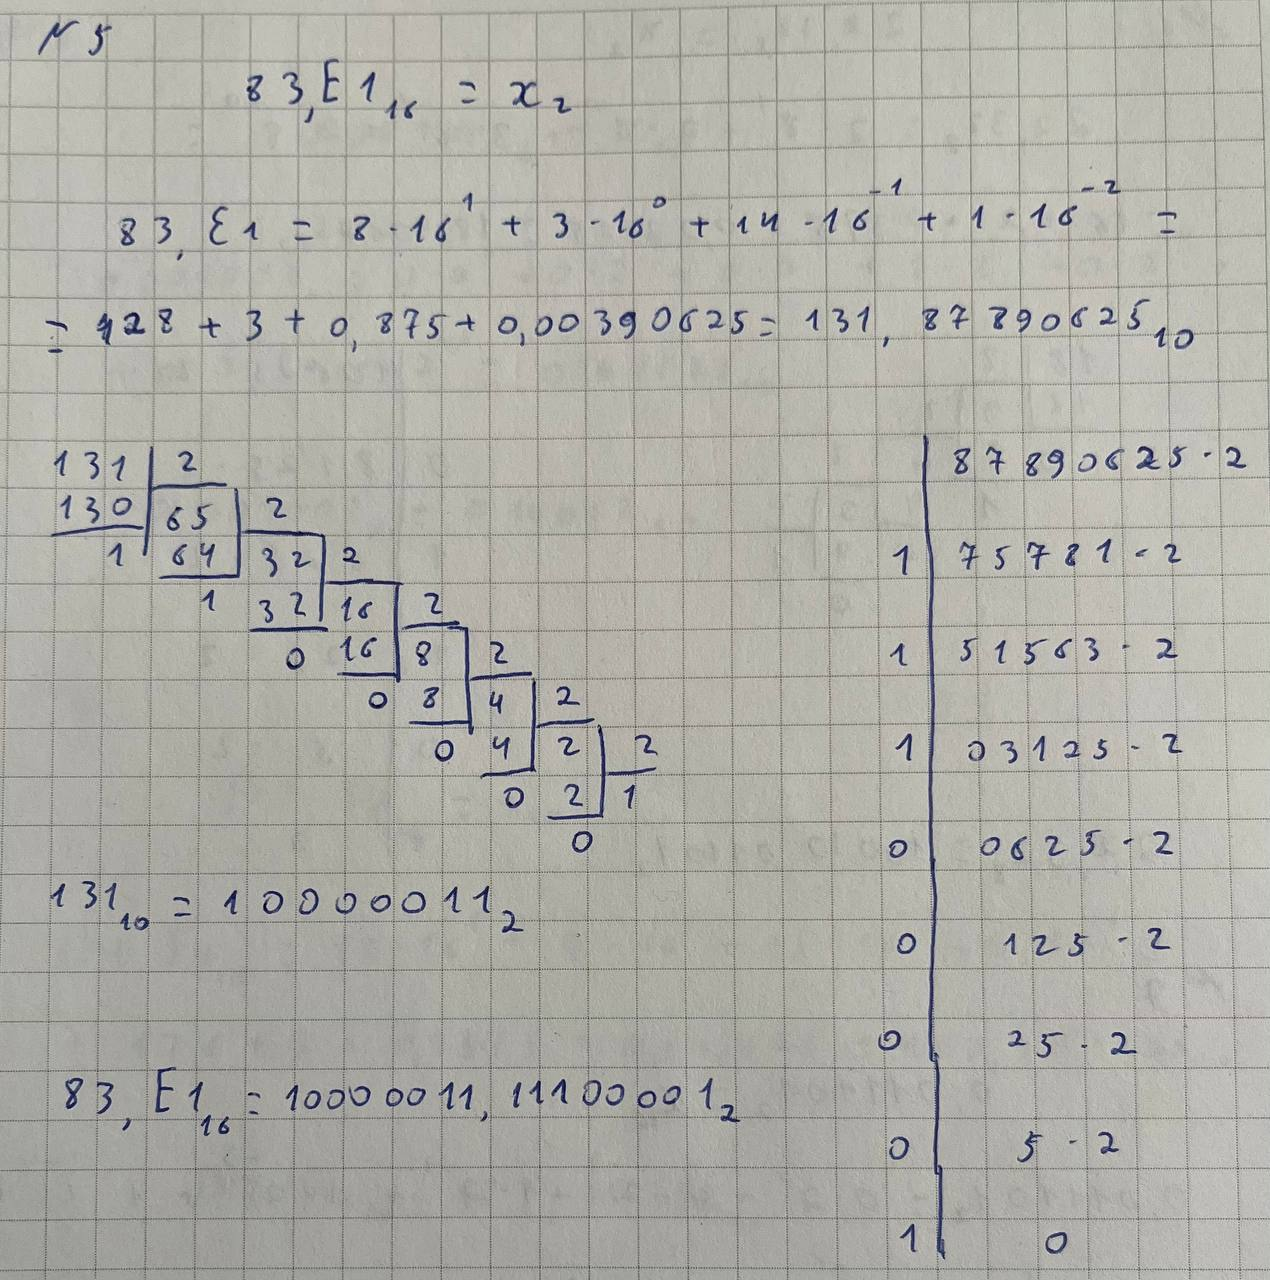 N 5
83,E1₁₆ = x₂
83,E1 = 8·16¹ + 3·16⁰ + 14·16⁻¹ + 1·16⁻² =
= 128 + 3 + 0,875 + 0,00390625 = 131,87890625₁₀
131 | 2
130 | 65 | 2
1 | 64 | 32 | 2
1 | 32 | 16 | 2
0 | 16 | 8 | 2
0 | 8 | 4 | 2
0 | 4 | 2 | 2
0 | 2 | 1
0
131₁₀ = 10000011₂
83,E1₁₆ = 10000011,11100001₂
| 87890625·2
1 | 75781·2
1 | 51563·2
1 | 03125·2
0 | 0625·2
0 | 125·2
0 | 25·2
0 | 5·2
1 | 0